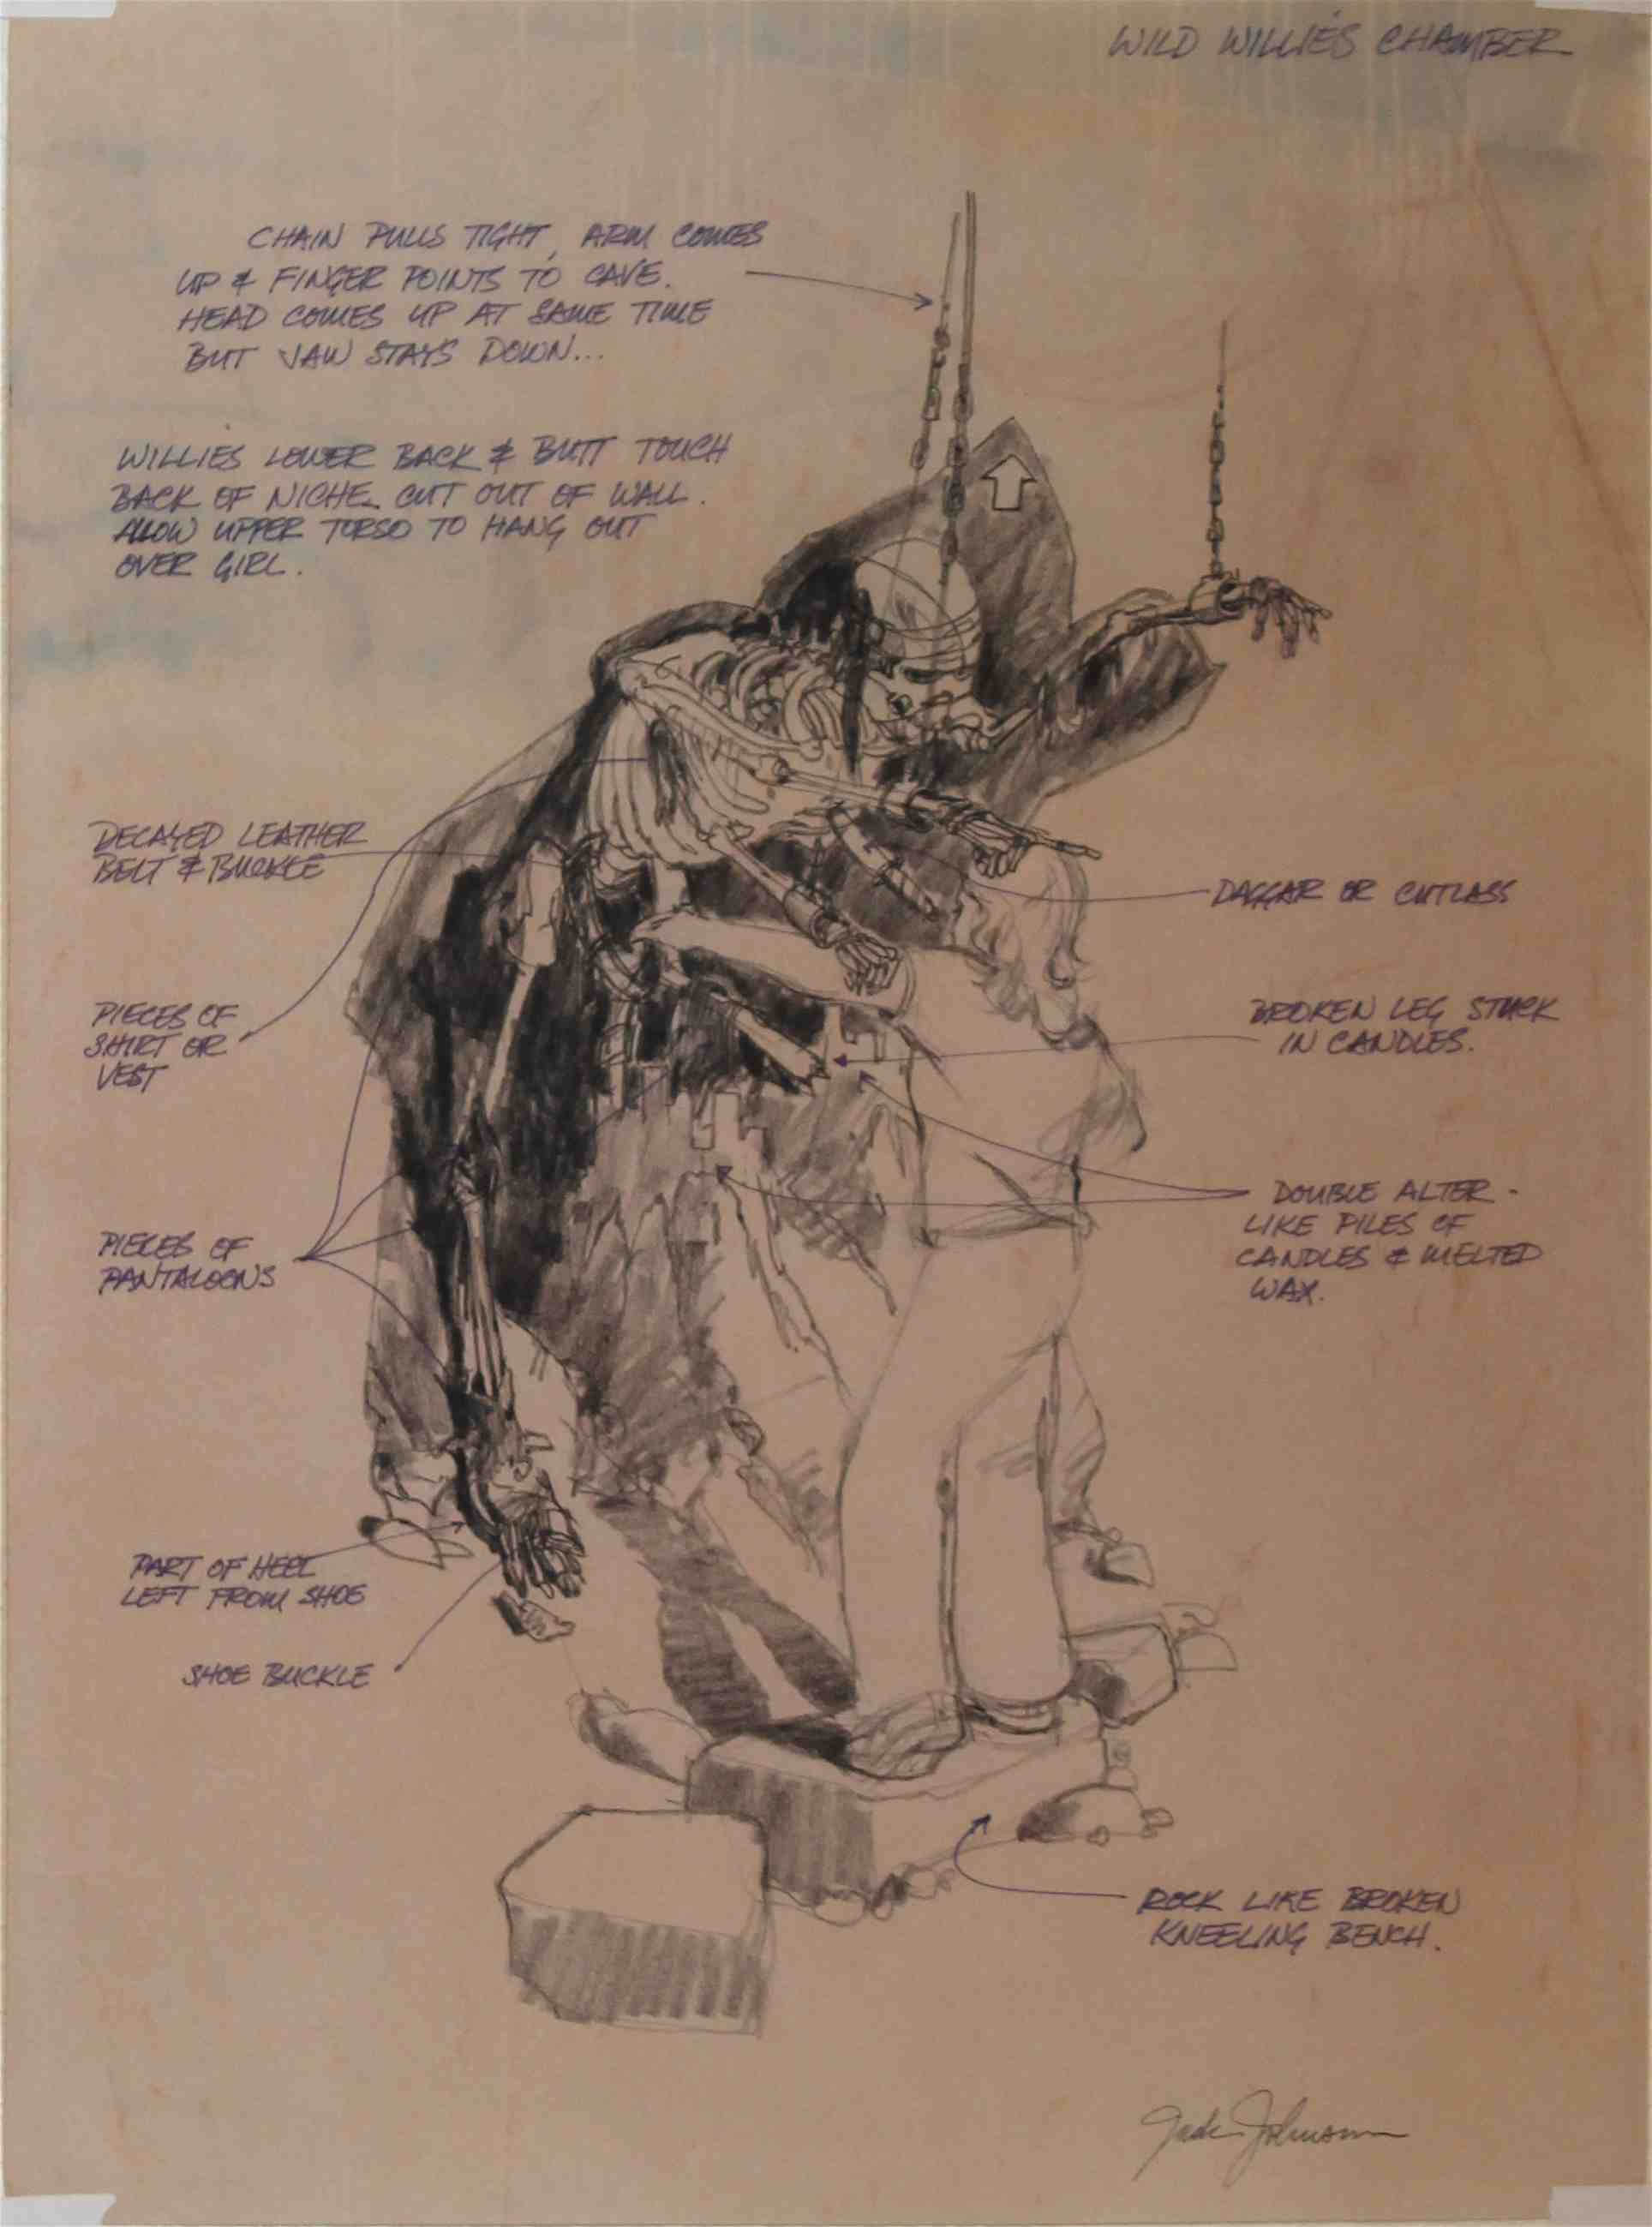 WILD WILLIE'S CHAMBER
CHAIN PULLS TIGHT, ARM COMES
UP & FINGER POINTS TO CAVE.
HEAD COMES UP AT SAME TIME
BUT JAW STAYS DOWN...
WILLIES LOWER BACK & BUTT TOUCH
BACK OF NICHE CUT OUT OF WALL.
ALLOW UPPER TORSO TO HANG OUT
OVER GIRL.
DECAYED LEATHER
BELT & BUCKLE
DAGGAR OR CUTLASS
PIECES OF
SHIRT OR
VEST
BROKEN LEG STUCK
IN CANDLES.
DOUBLE ALTER -
LIKE PILES OF
CANDLES & MELTED
WAX.
PIECES OF
PANTALOONS
PART OF HEEL
LEFT FROM SHOE
SHOE BUCKLE
ROCK LIKE BROKEN
KNEELING BENCH.
Jack Johnson